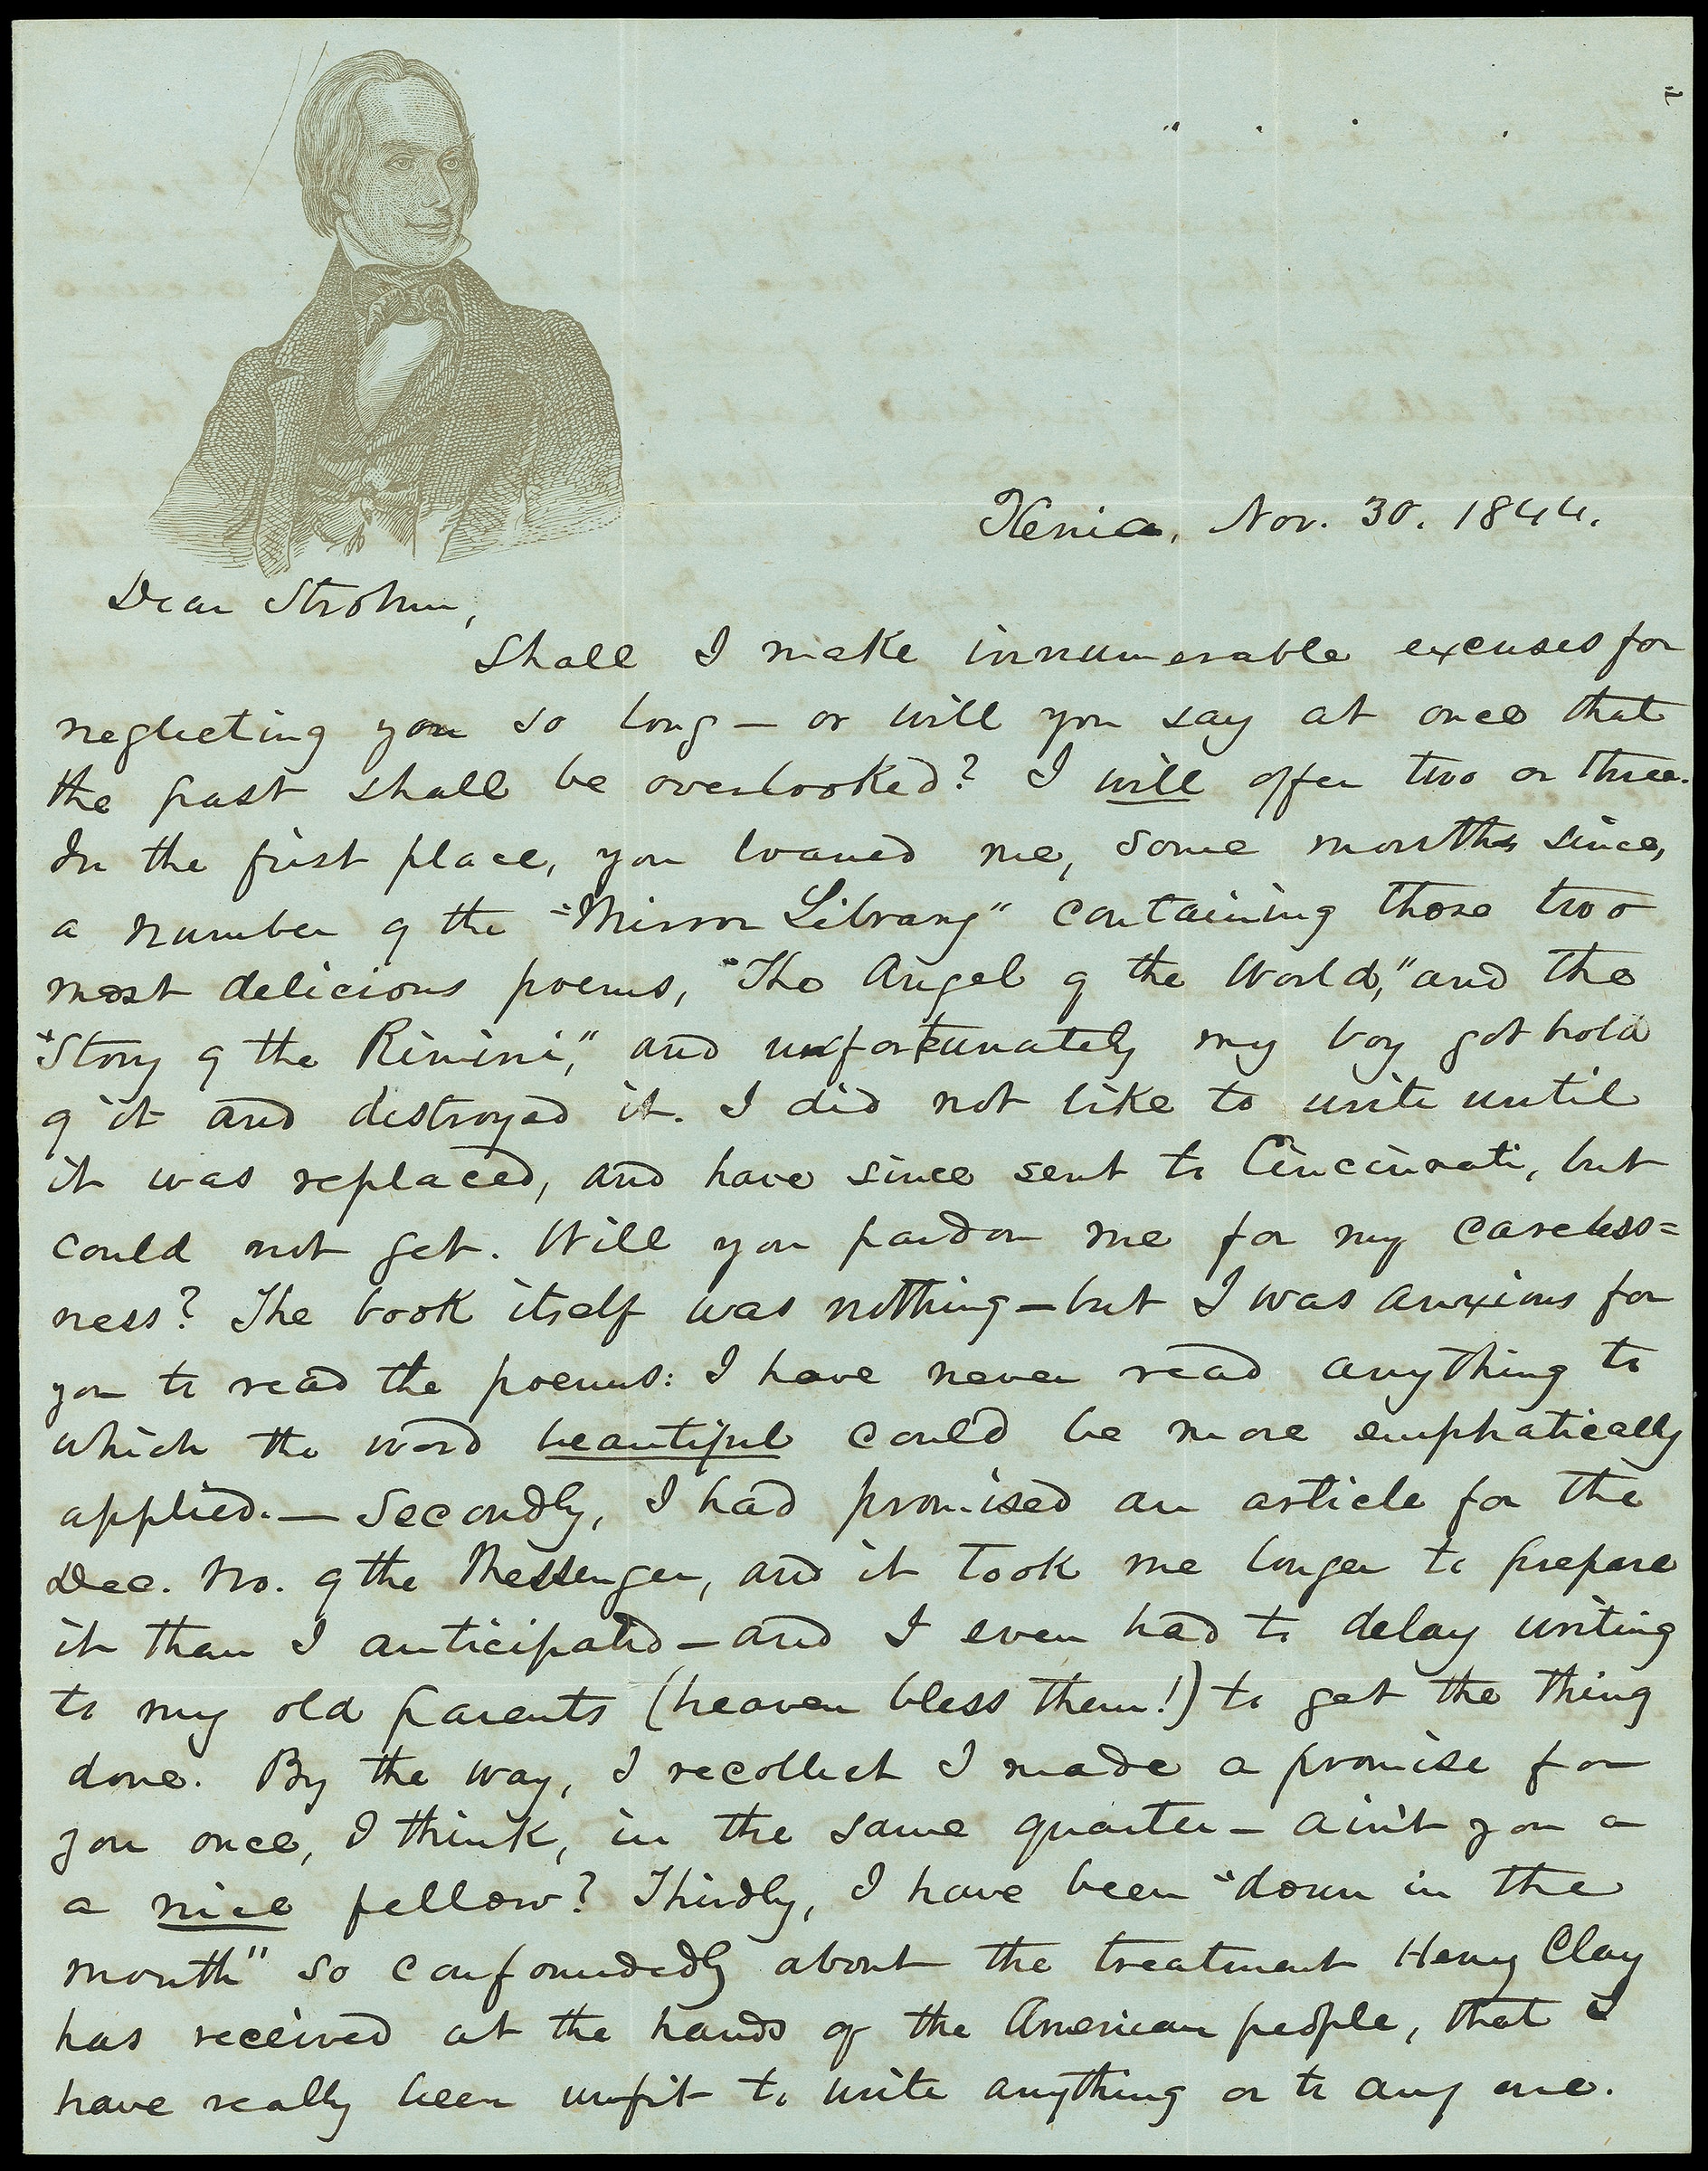 Xenia, Nov. 30. 1844.
Dear Strohm,
Shall I make innumerable excuses for
neglecting you so long — or will you say at once that
the past shall be overlooked? I will offer two or three.
In the first place, you loaned me, some months since,
a number of the "Mirror Library" containing those two
most delicious poems, "The Angel of the World," and the
"Story of the Rimini," and unfortunately my boy got hold
of it and destroyed it. I did not like to write until
it was replaced, and have since sent to Cincinnati, but
could not get. Will you pardon me for my careless=
ness? The book itself was nothing — but I was anxious for
you to read the poems: I have never read anything to
which the word beautiful could be more emphatically
applied. — Secondly, I had promised an article for the
Dec. No. of the Messenger, and it took me longer to prepare
it than I anticipated — and I even had to delay writing
to my old parents (heaven bless them!) to get the thing
done. By the way, I recollect I made a promise for
you once, I think, in the same quarter — ain't you a
a nice fellow? Thirdly, I have been "down in the
mouth" so confoundedly about the treatment Henry Clay
has received at the hands of the American people, that I
have really been unfit to write anything or to any one.